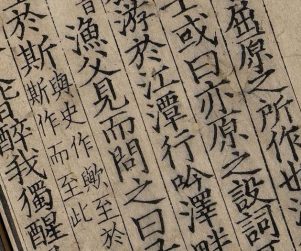 屈原之所作也
士或曰亦原之設詞
游於江潭行吟澤
漁父見而問之曰子
與史作歟至於
斯作而至此
於斯
皆醉我獨醒